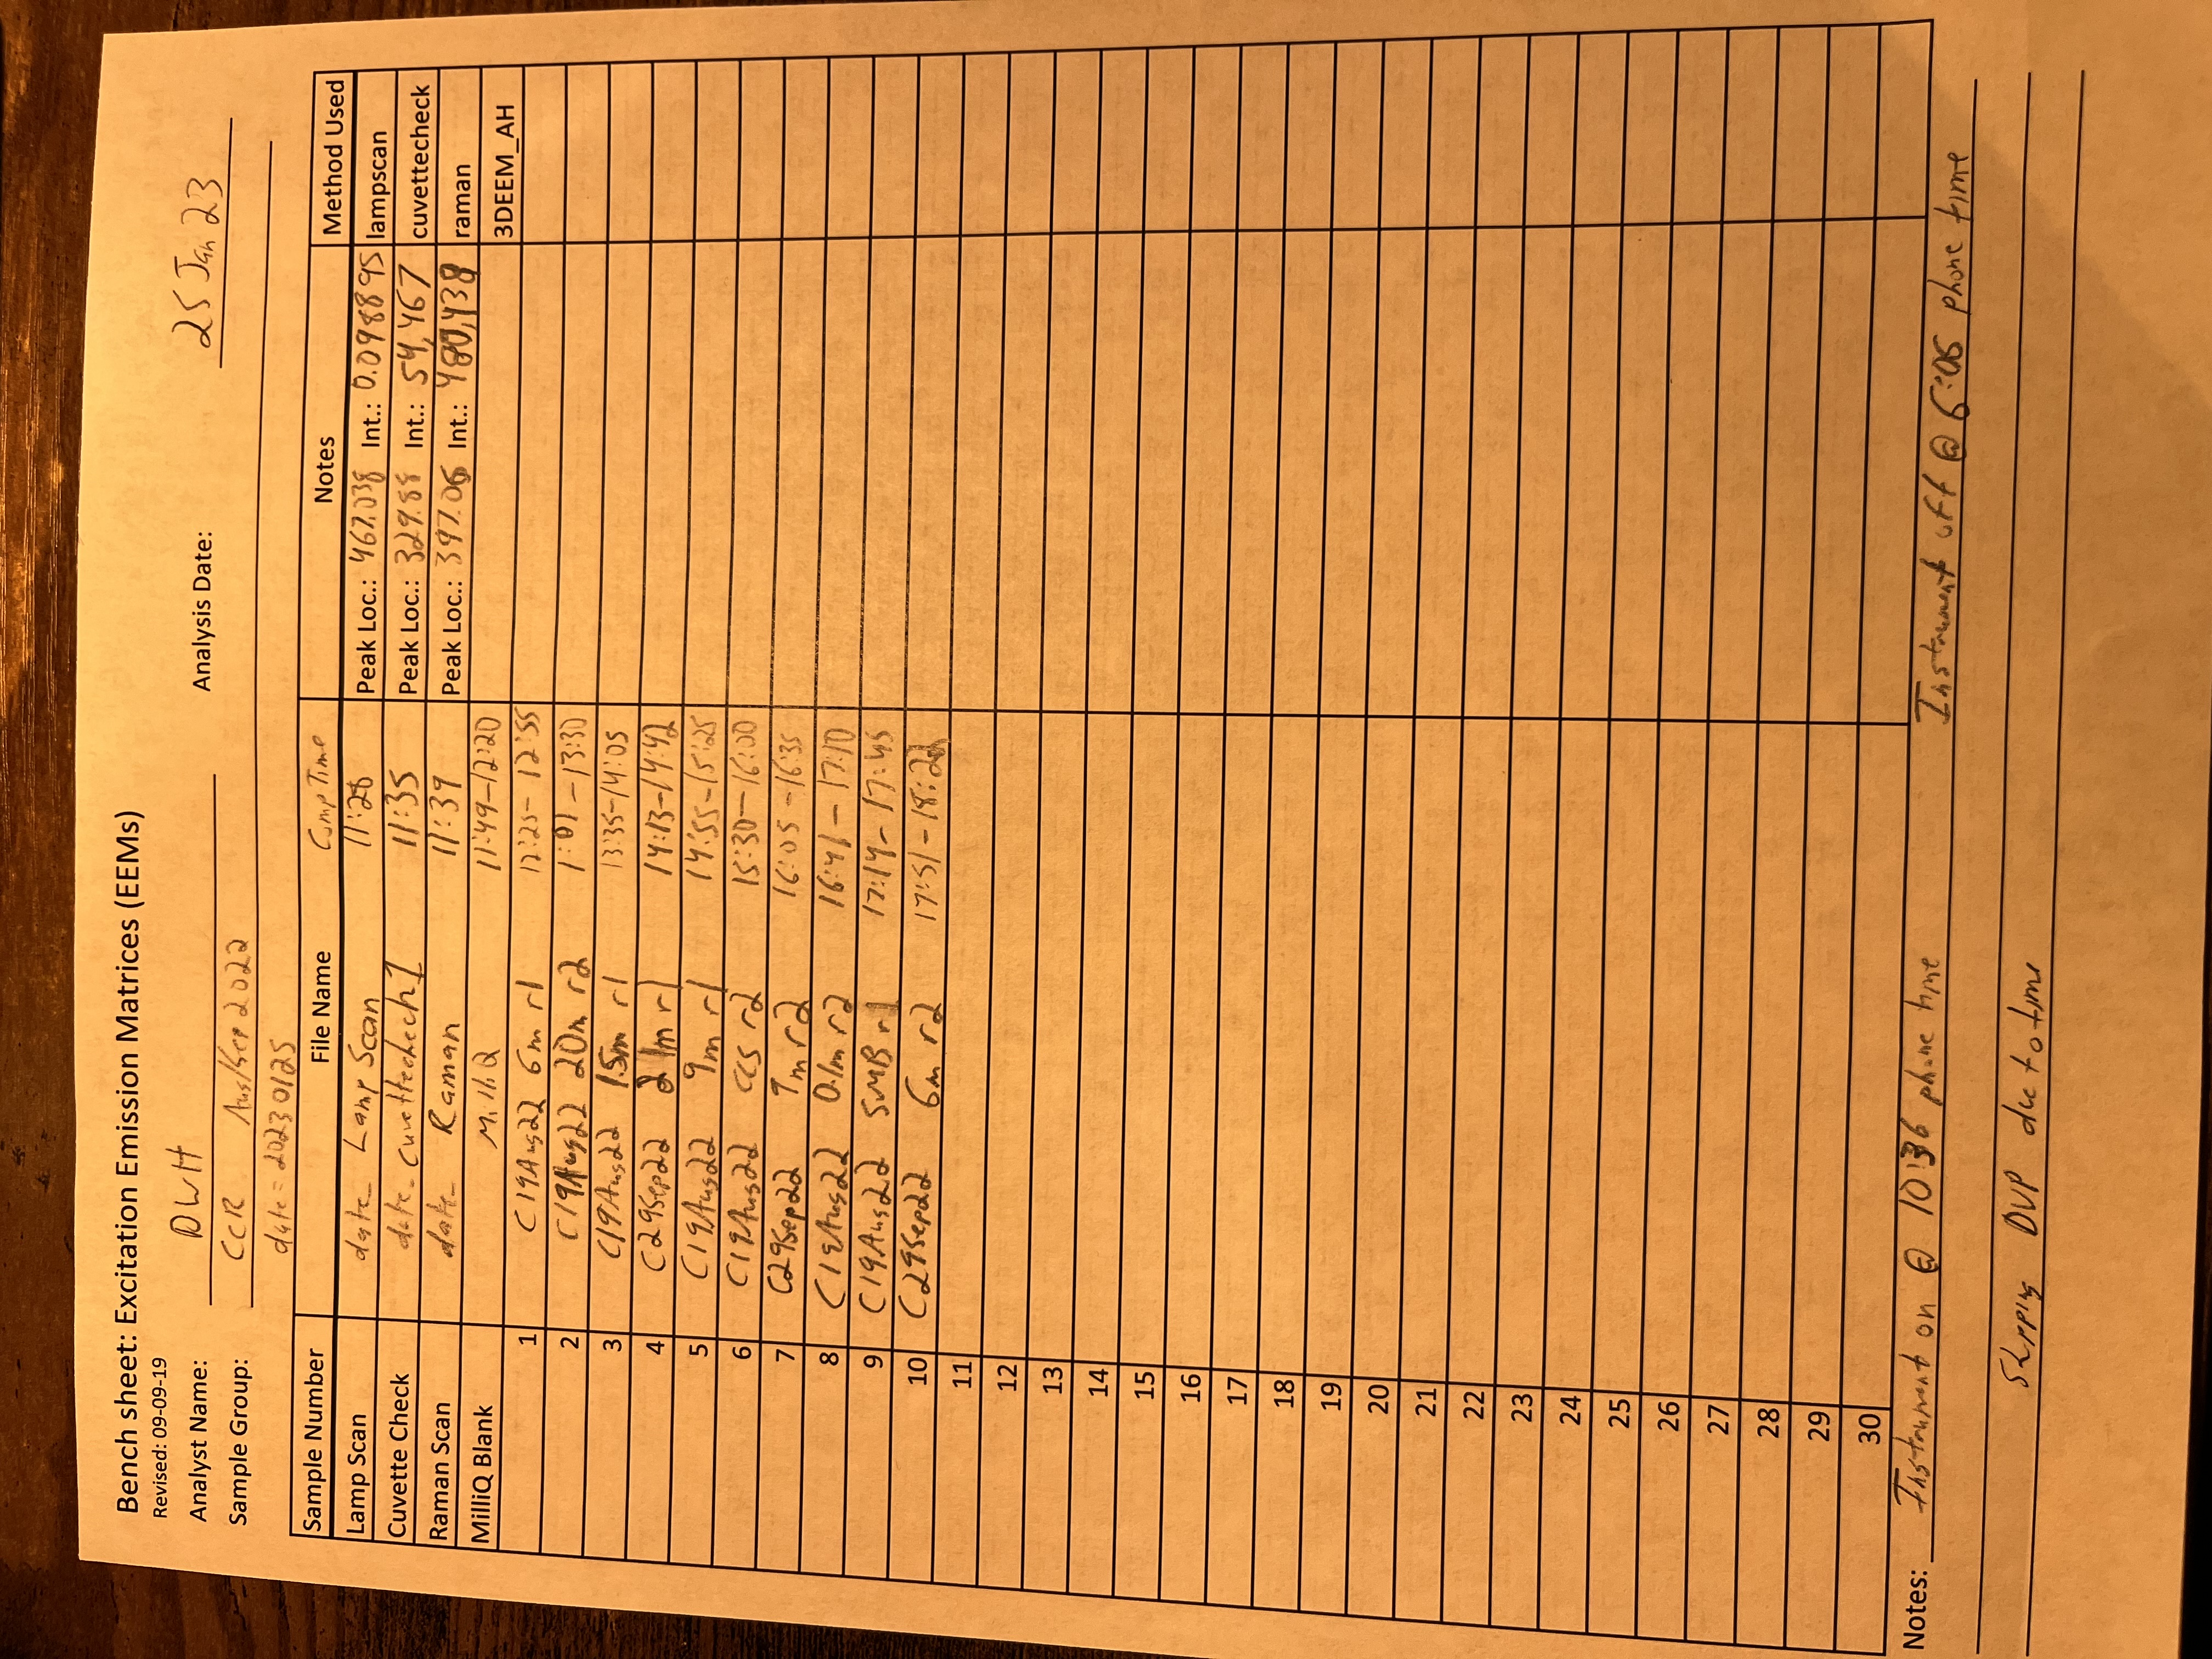 Bench sheet: Excitation Emission Matrices (EEMs)
Revised: 09-09-19
Analyst Name: DWH Analysis Date: 25 Jan 23
Sample Group: CCR Aug/Sep 2022
date = 20230125
Sample Number File Name Comp Time Notes Method Used
Lamp Scan date_ Lamp Scan 11:28 Peak Loc.: 467.038 Int.: 0.098895 lampscan
Cuvette Check date_ cuvettecheck1 11:35 Peak Loc.: 329.88 Int.: 54,467 cuvettecheck
Raman Scan date_ Raman 11:39 Peak Loc.: 397.06 Int.: 480,438 raman
MilliQ Blank MilliQ 11:49-12:20 3DEEM_AH
1 C19Aug22 6m r1 12:25-12:55
2 C19Aug22 20m r2 1:01-13:30
3 C19Aug22 1.5m r1 13:35-14:05
4 C29Sep22 21m r1 14:13-14:42
5 C19Aug22 9m r1 14:55-15:25
6 C19Aug22 ccs r2 15:30-16:00
7 C29Sep22 9m r2 16:05-16:35
8 C19Aug22 0.1m r2 16:41-17:10
9 C19Aug22 SMB r1 17:14-17:45
10 C29Sep22 6m r2 17:51-18:22
11
12
13
14
15
16
17
18
19
20
21
22
23
24
25
26
27
28
29
30
Notes: Instrument on @ 10:36 phone time Instrument off @ 6:06 phone time
DVP due to time